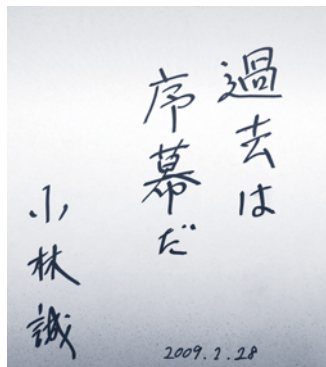 過去は
序幕だ
小林誠
2009.2.28